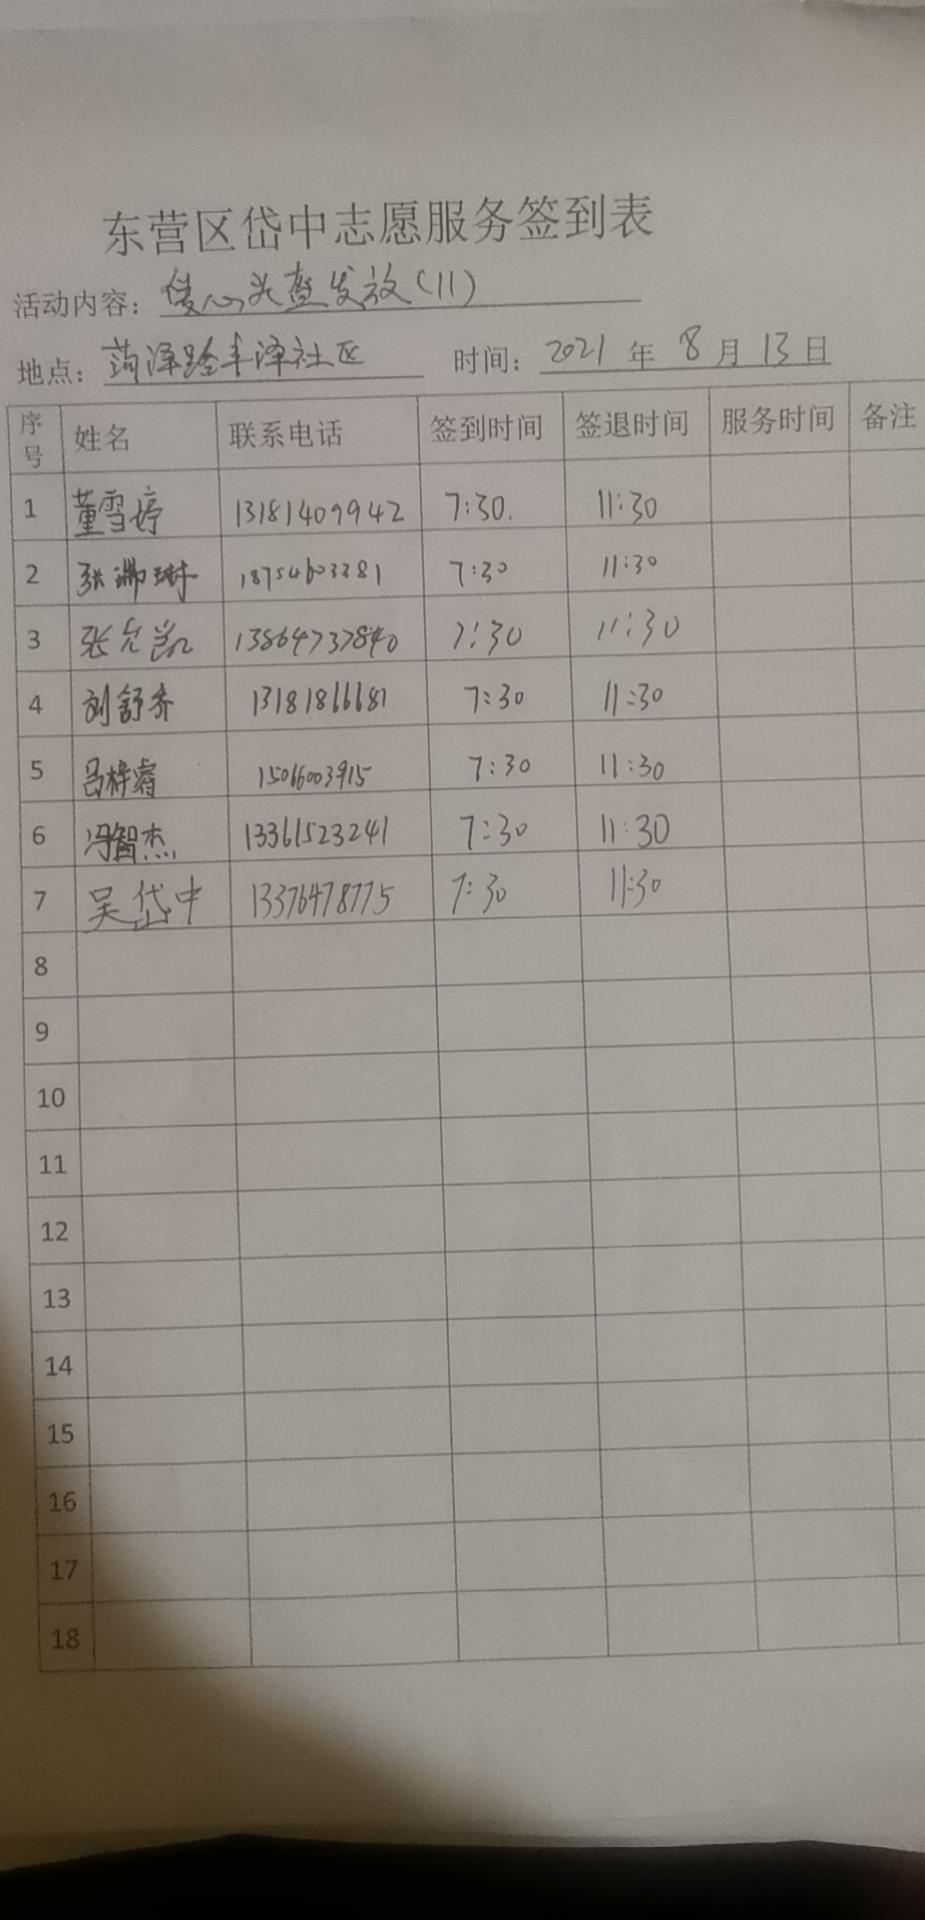 东营区岱中志愿服务签到表
活动内容：爱心头盔发放(11)
地点：菏泽路丰泽社区 时间：2021年8月13日
序号 姓名 联系电话 签到时间 签退时间 服务时间 备注
1 董雪婷 13181409942 7:30. 11:30
2 张瑞琳 18754603381 7:30 11:30
3 张允凯 13864737840 7:30 11:30
4 刘舒齐 13181866681 7:30 11:30
5 吕梓睿 15066003915 7:30 11:30
6 冯智杰 13361523241 7:30 11:30
7 吴岱中 13376478775 7:30 11:30
8
9
10
11
12
13
14
15
16
17
18